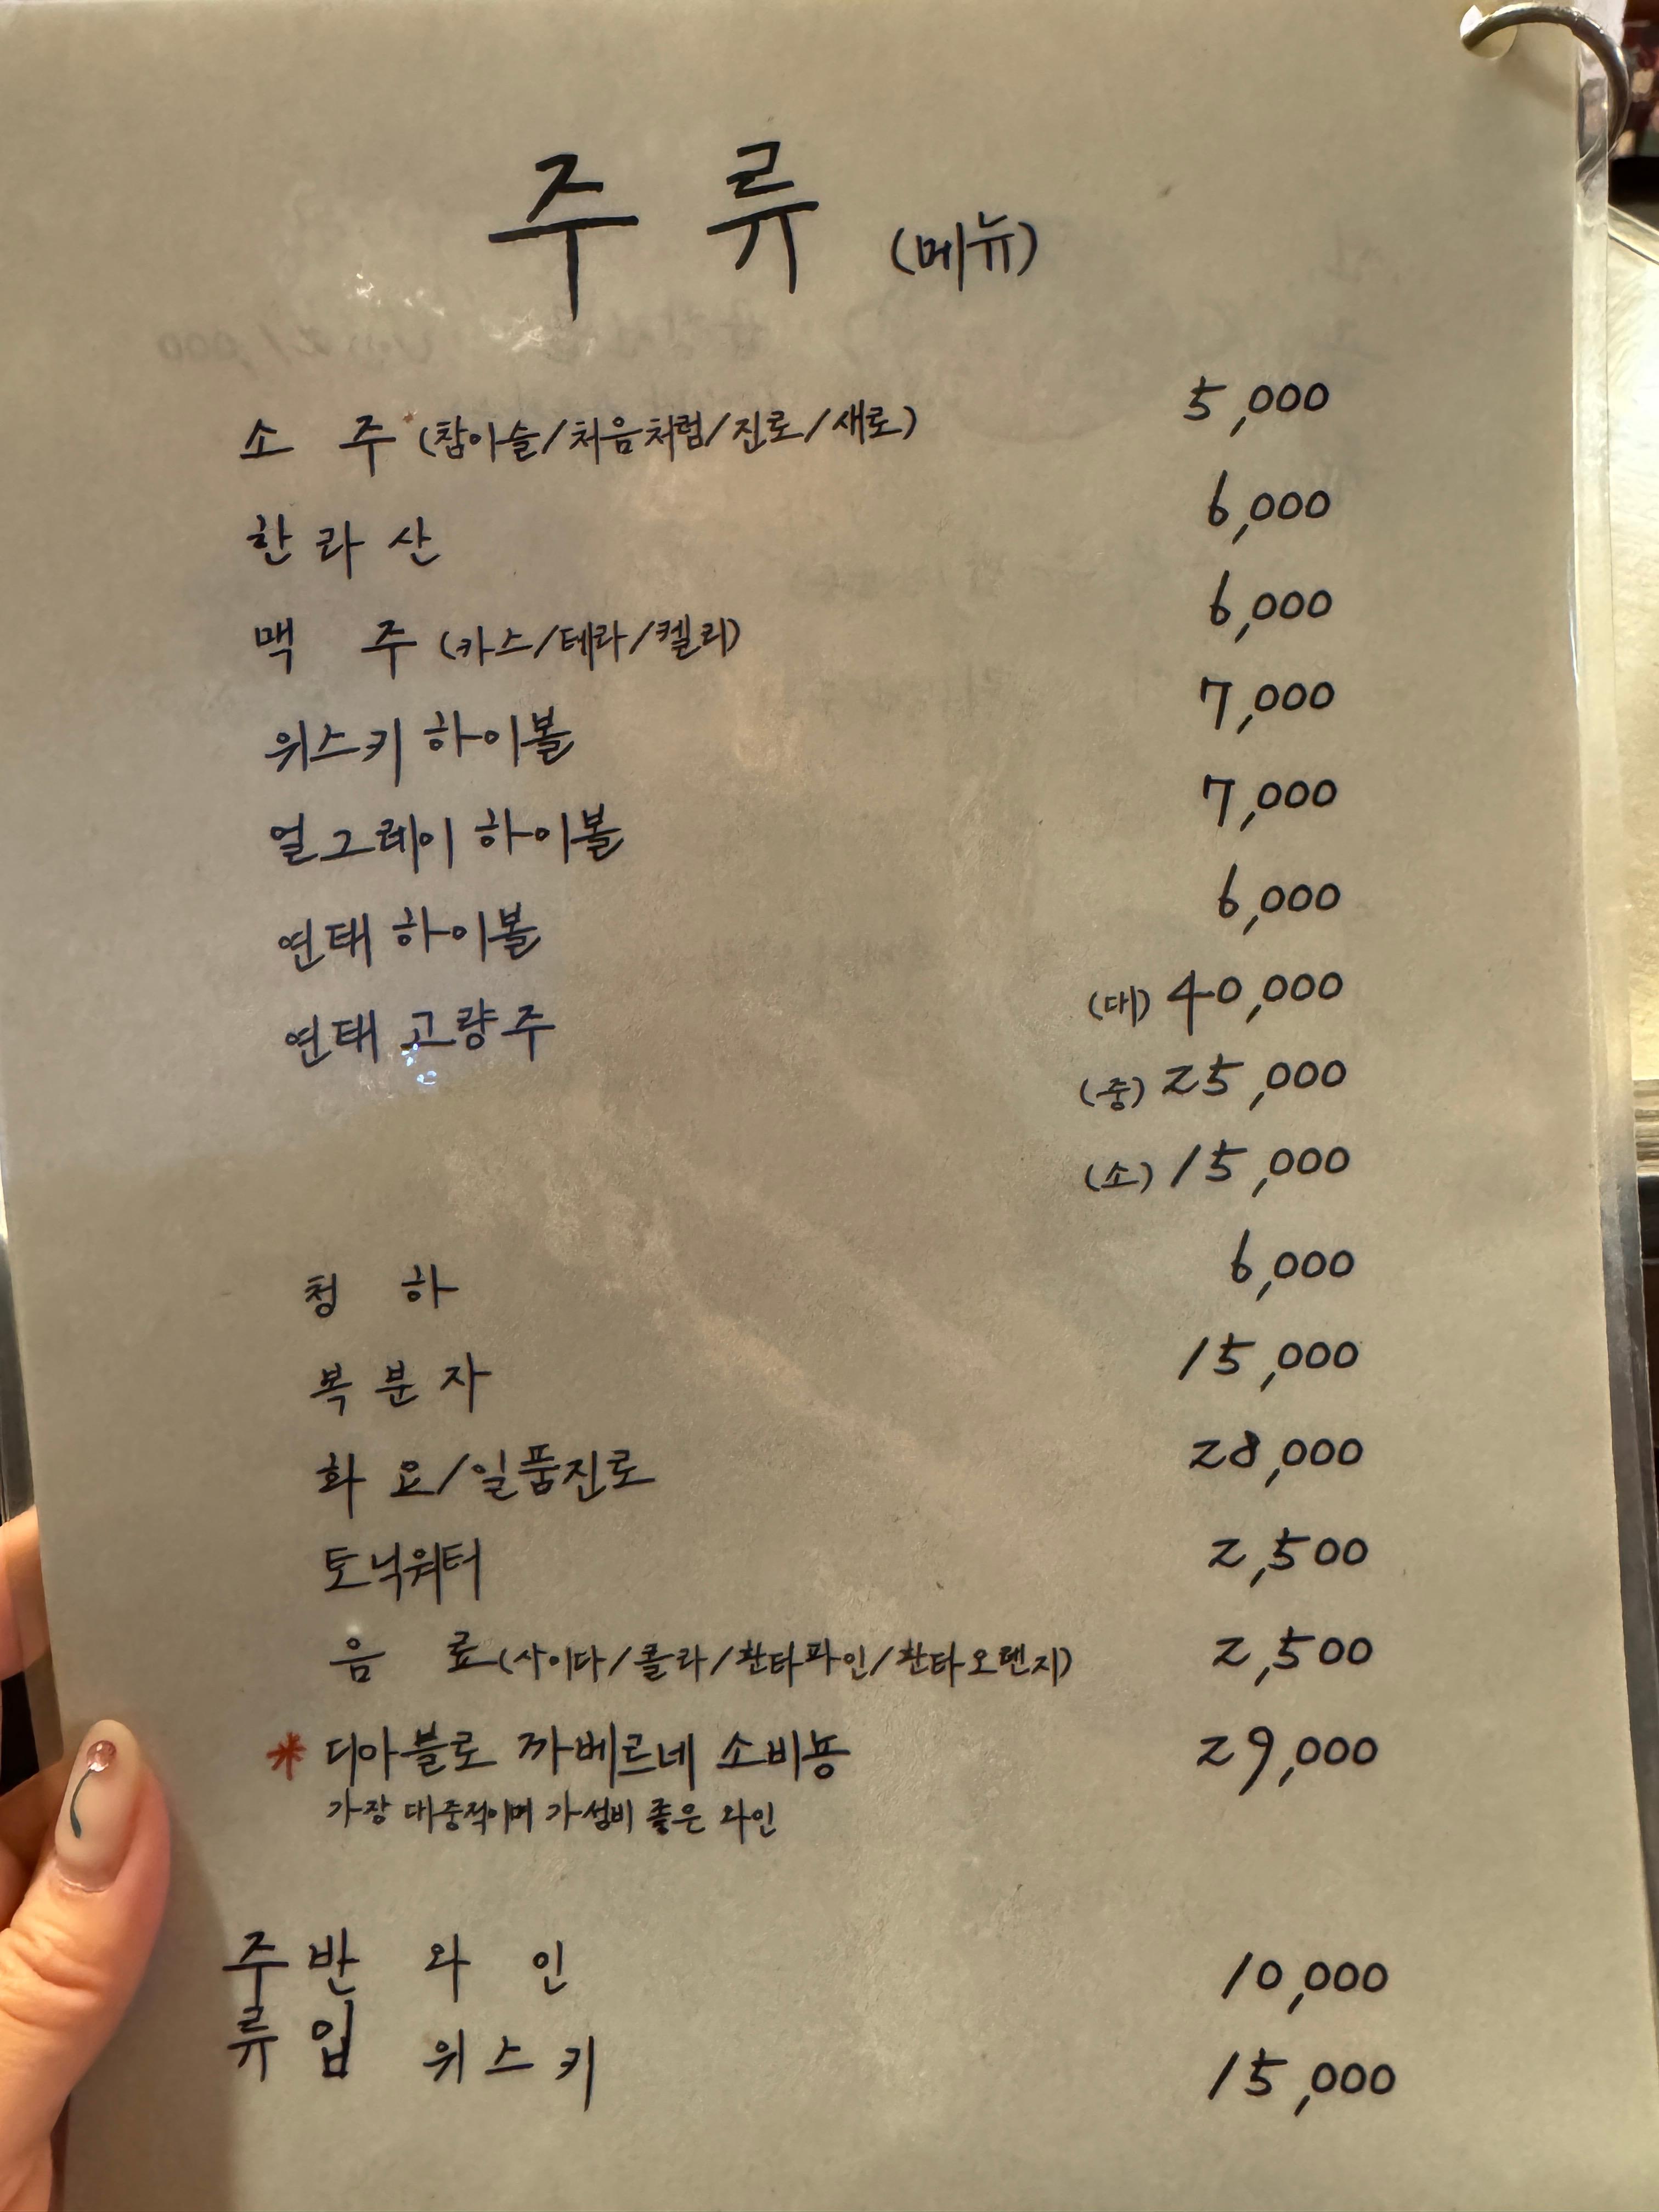 주 류 (메뉴)
소 주 (참이슬/처음처럼/진로/새로) 5,000
한라산 6,000
맥 주 (카스/테라/켈리) 6,000
위스키 하이볼 7,000
얼그레이 하이볼 7,000
연태 하이볼 6,000
연태 고량주 (대) 40,000
(중) 25,000
(소) 15,000
청 하 6,000
복분자 15,000
화 요/일품진로 28,000
토닉워터 2,500
음 료 (사이다/콜라/환타파인/환타오렌지) 2,500
* 디아블로 까베르네 소비뇽 29,000
가장 대중적이며 가성비 좋은 와인
주 반 와 인 10,000
류 입 위스키 15,000